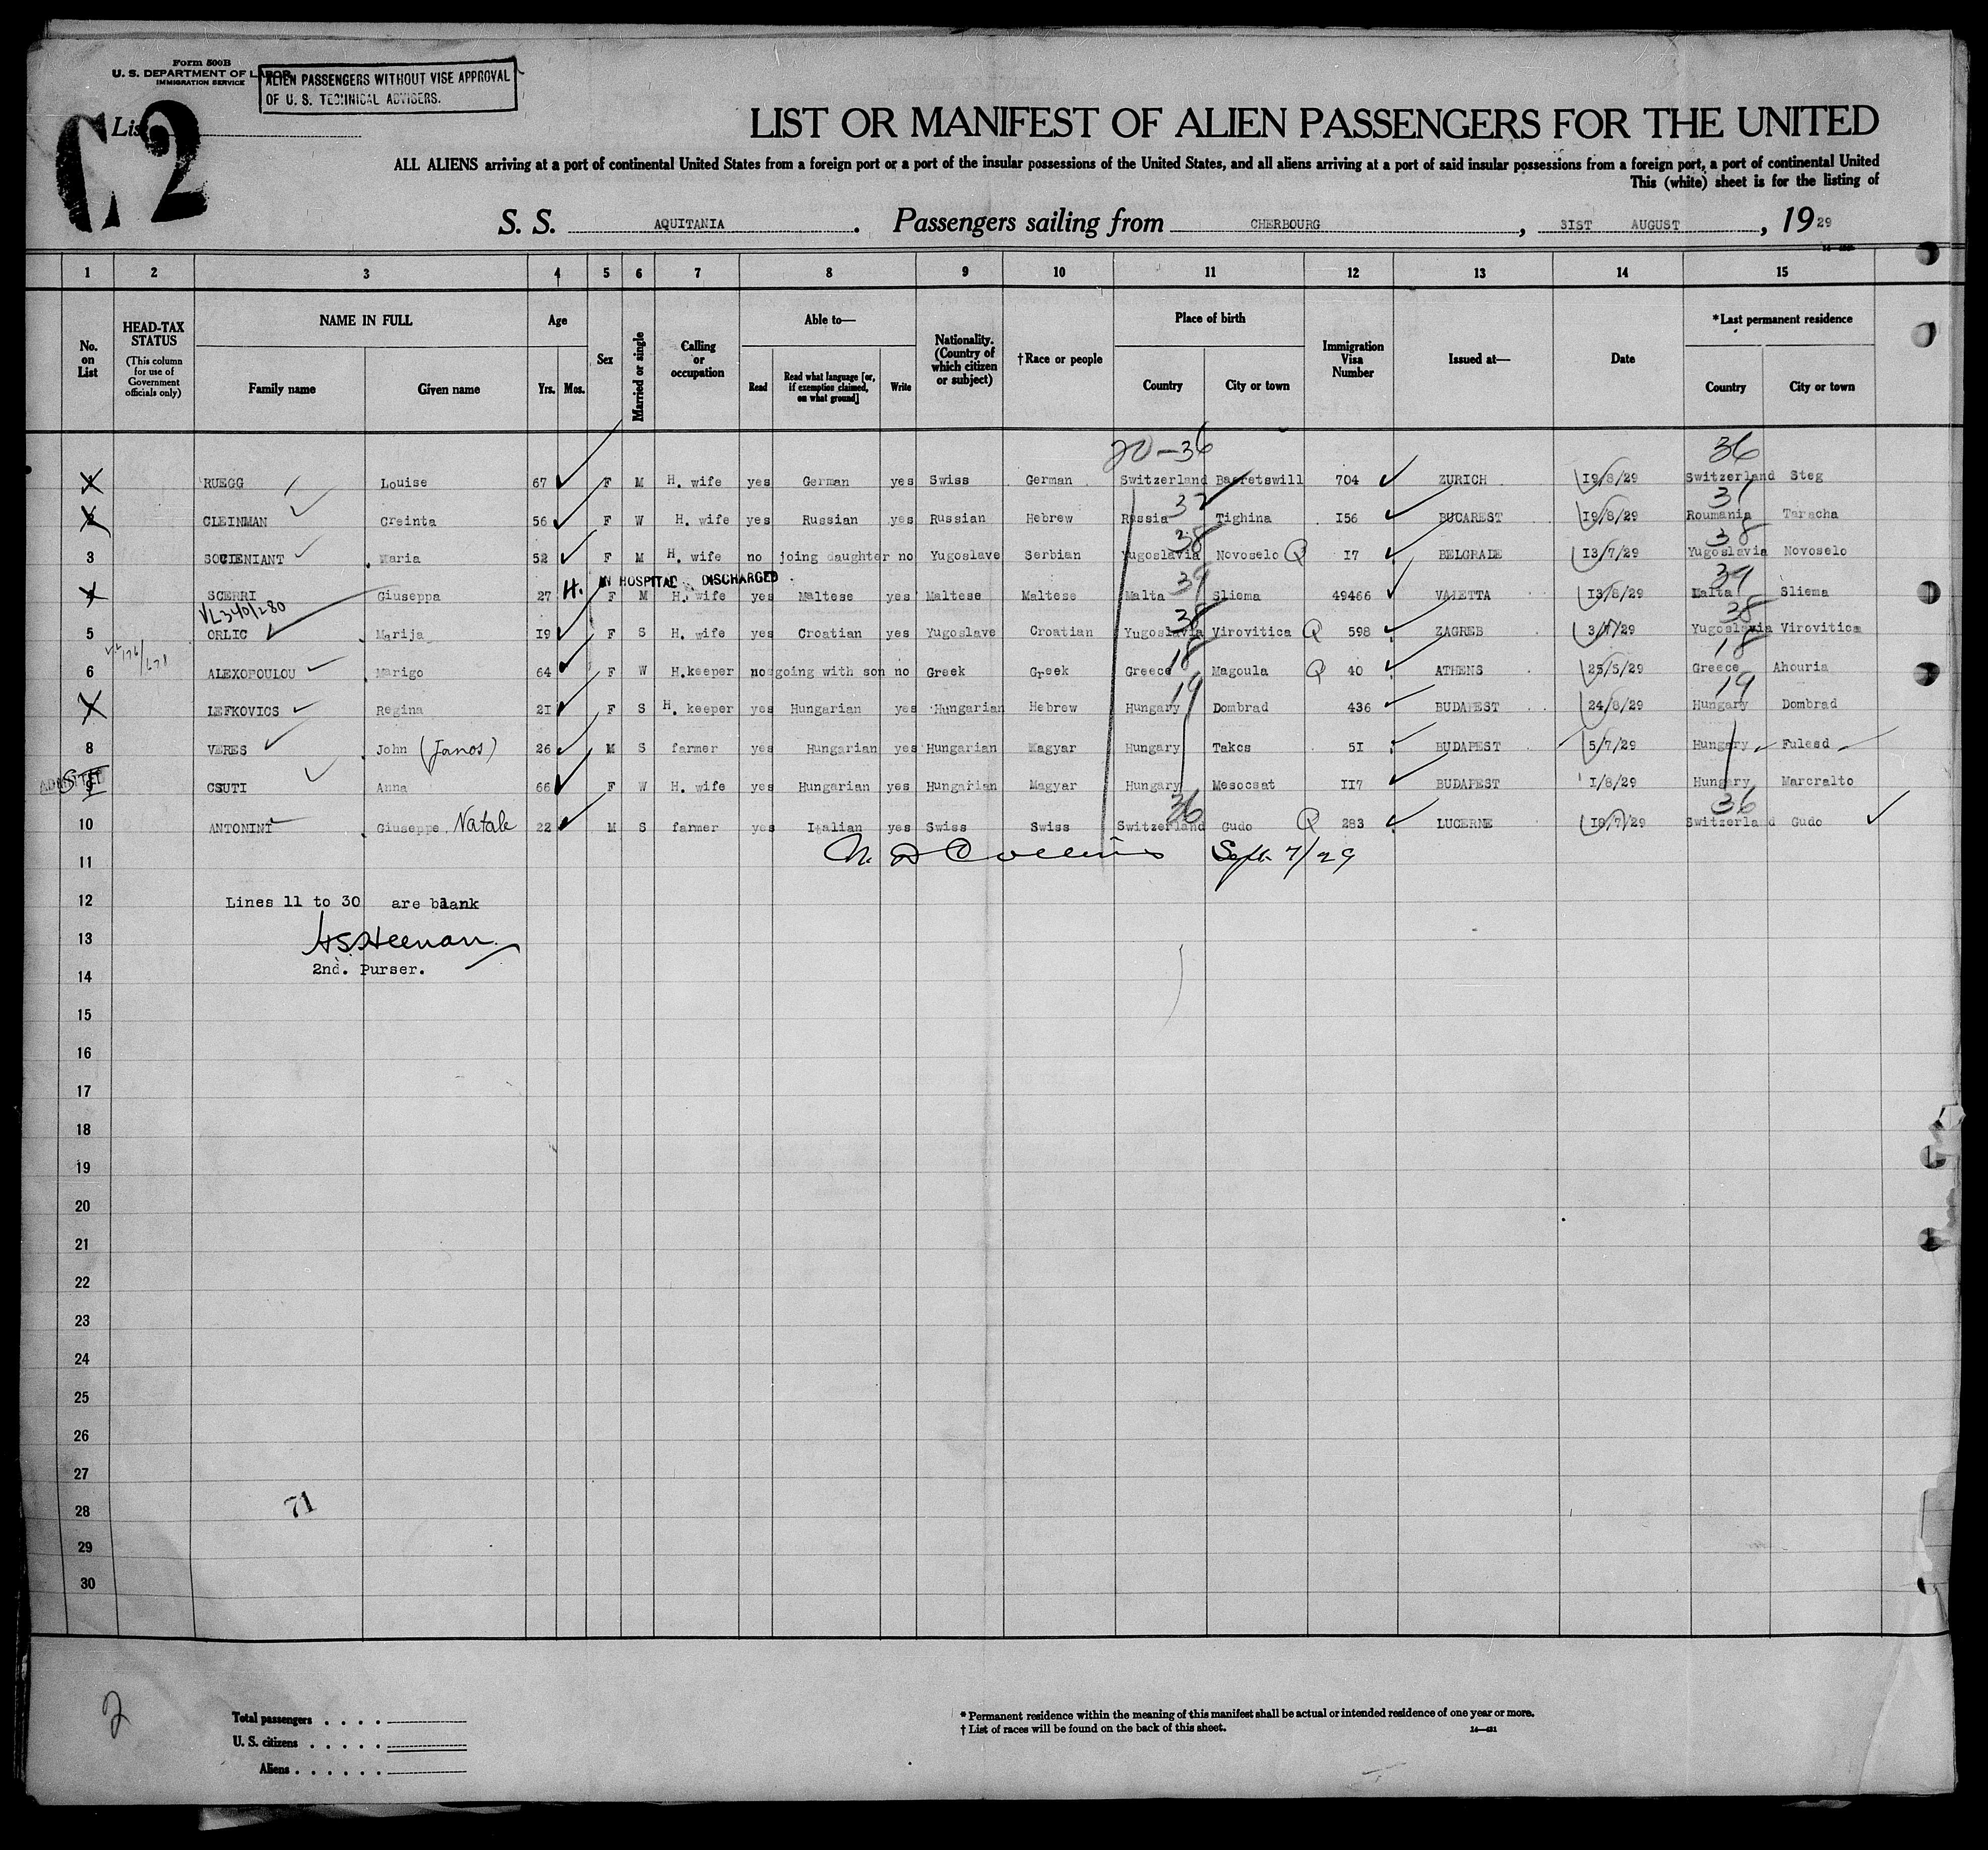 Form 500B
U. S. DEPARTMENT OF LABOR
IMMIGRATION SERVICE
ALIEN PASSENGERS WITHOUT VISE APPROVAL
OF U. S. TECHNICAL ADVISERS.
List
2
LIST OR MANIFEST OF ALIEN PASSENGERS FOR THE UNITED
ALL ALIENS arriving at a port of continental United States from a foreign port or a port of the insular possessions of the United States, and all aliens arriving at a port of said insular possessions from a foreign port, a port of continental United
This (white) sheet is for the listing of
S. S. AQUITANIA . Passengers sailing from CHERBOURG , 31ST AUGUST , 1929
1 2 3 4 5 6 7 8 9 10 11 12 13 14 15
No. on List
HEAD-TAX STATUS (This column for use of Government officials only)
NAME IN FULL
Family name Given name
Age
Yrs. Mos.
Sex
Married or single
Calling or occupation
Able to—
Read Read what language [or, if exemption claimed, on what ground] Write
Nationality. (Country of which citizen or subject)
†Race or people
Place of birth
Country City or town
Immigration Visa Number
Issued at—
Date
*Last permanent residence
Country City or town
20-36 36
1 RUEGG Louise 67 F M H. wife yes German yes Swiss German Switzerland Baeretswill 704 ZURICH 19/8/29 Switzerland Steg
37 31
2 CLEINMAN Creinta 56 F W H. wife yes Russian yes Russian Hebrew Russia Tighina I56 BUCAREST 19/8/29 Roumania Taracha
38 38
3 SOCIENIANT Maria 52 F M H. wife no joing daughter no Yugoslave Serbian Yugoslavia Novoselo Q I7 BELGRADE 13/7/29 Yugoslavia Novoselo
IN HOSPITAL DISCHARGED
39 39
4 SCERRI Giuseppa 27 H. F M H. wife yes Maltese yes Maltese Maltese Malta Sliema 49466 VALETTA 13/8/29 Malta Sliema
VL340/280
38 38
5 ORLIC Marija I9 F S H. wife yes Croatian yes Yugoslave Croatian Yugoslavia Virovitica Q 598 ZAGREB 3/7/29 Yugoslavia Virovitica
18 18
6 ALEXOPOULOU Marigo 64 F W H.keeper no going with son no Greek Greek Greece Magoula Q 40 ATHENS 25/5/29 Greece Ahouria
19 19
LEFKOVICS Regina 2I F S H. keeper yes Hungarian yes Hungarian Hebrew Hungary Dombrad 436 BUDAPEST 24/8/29 Hungary Dombrad
8 VERES John (Janos) 26 M S farmer yes Hungarian yes Hungarian Magyar Hungary Takos 5I BUDAPEST 5/7/29 Hungary Fulesd
ADMITTED
9 CSUTI Anna 66 F W H. wife yes Hungarian yes Hungarian Magyar Hungary Mesocsat II7 BUDAPEST I/8/29 Hungary Marcralto
36 36
10 ANTONINI Giuseppe Natale 22 M S farmer yes Italian yes Swiss Swiss Switzerland Gudo Q 283 LUCERNE 19/7/29 Switzerland Gudo
11 Collins Sept 7/29
12 Lines 11 to 30 are blank
13 H.S. Heenan
14 2nd. Purser.
15
16
17
18
19
20
21
22
23
24
25
26
27
28 71
29
30
2
Total passengers . . . .
U. S. citizens . . . . .
Aliens . . . . . .
* Permanent residence within the meaning of this manifest shall be actual or intended residence of one year or more.
† List of races will be found on the back of this sheet.